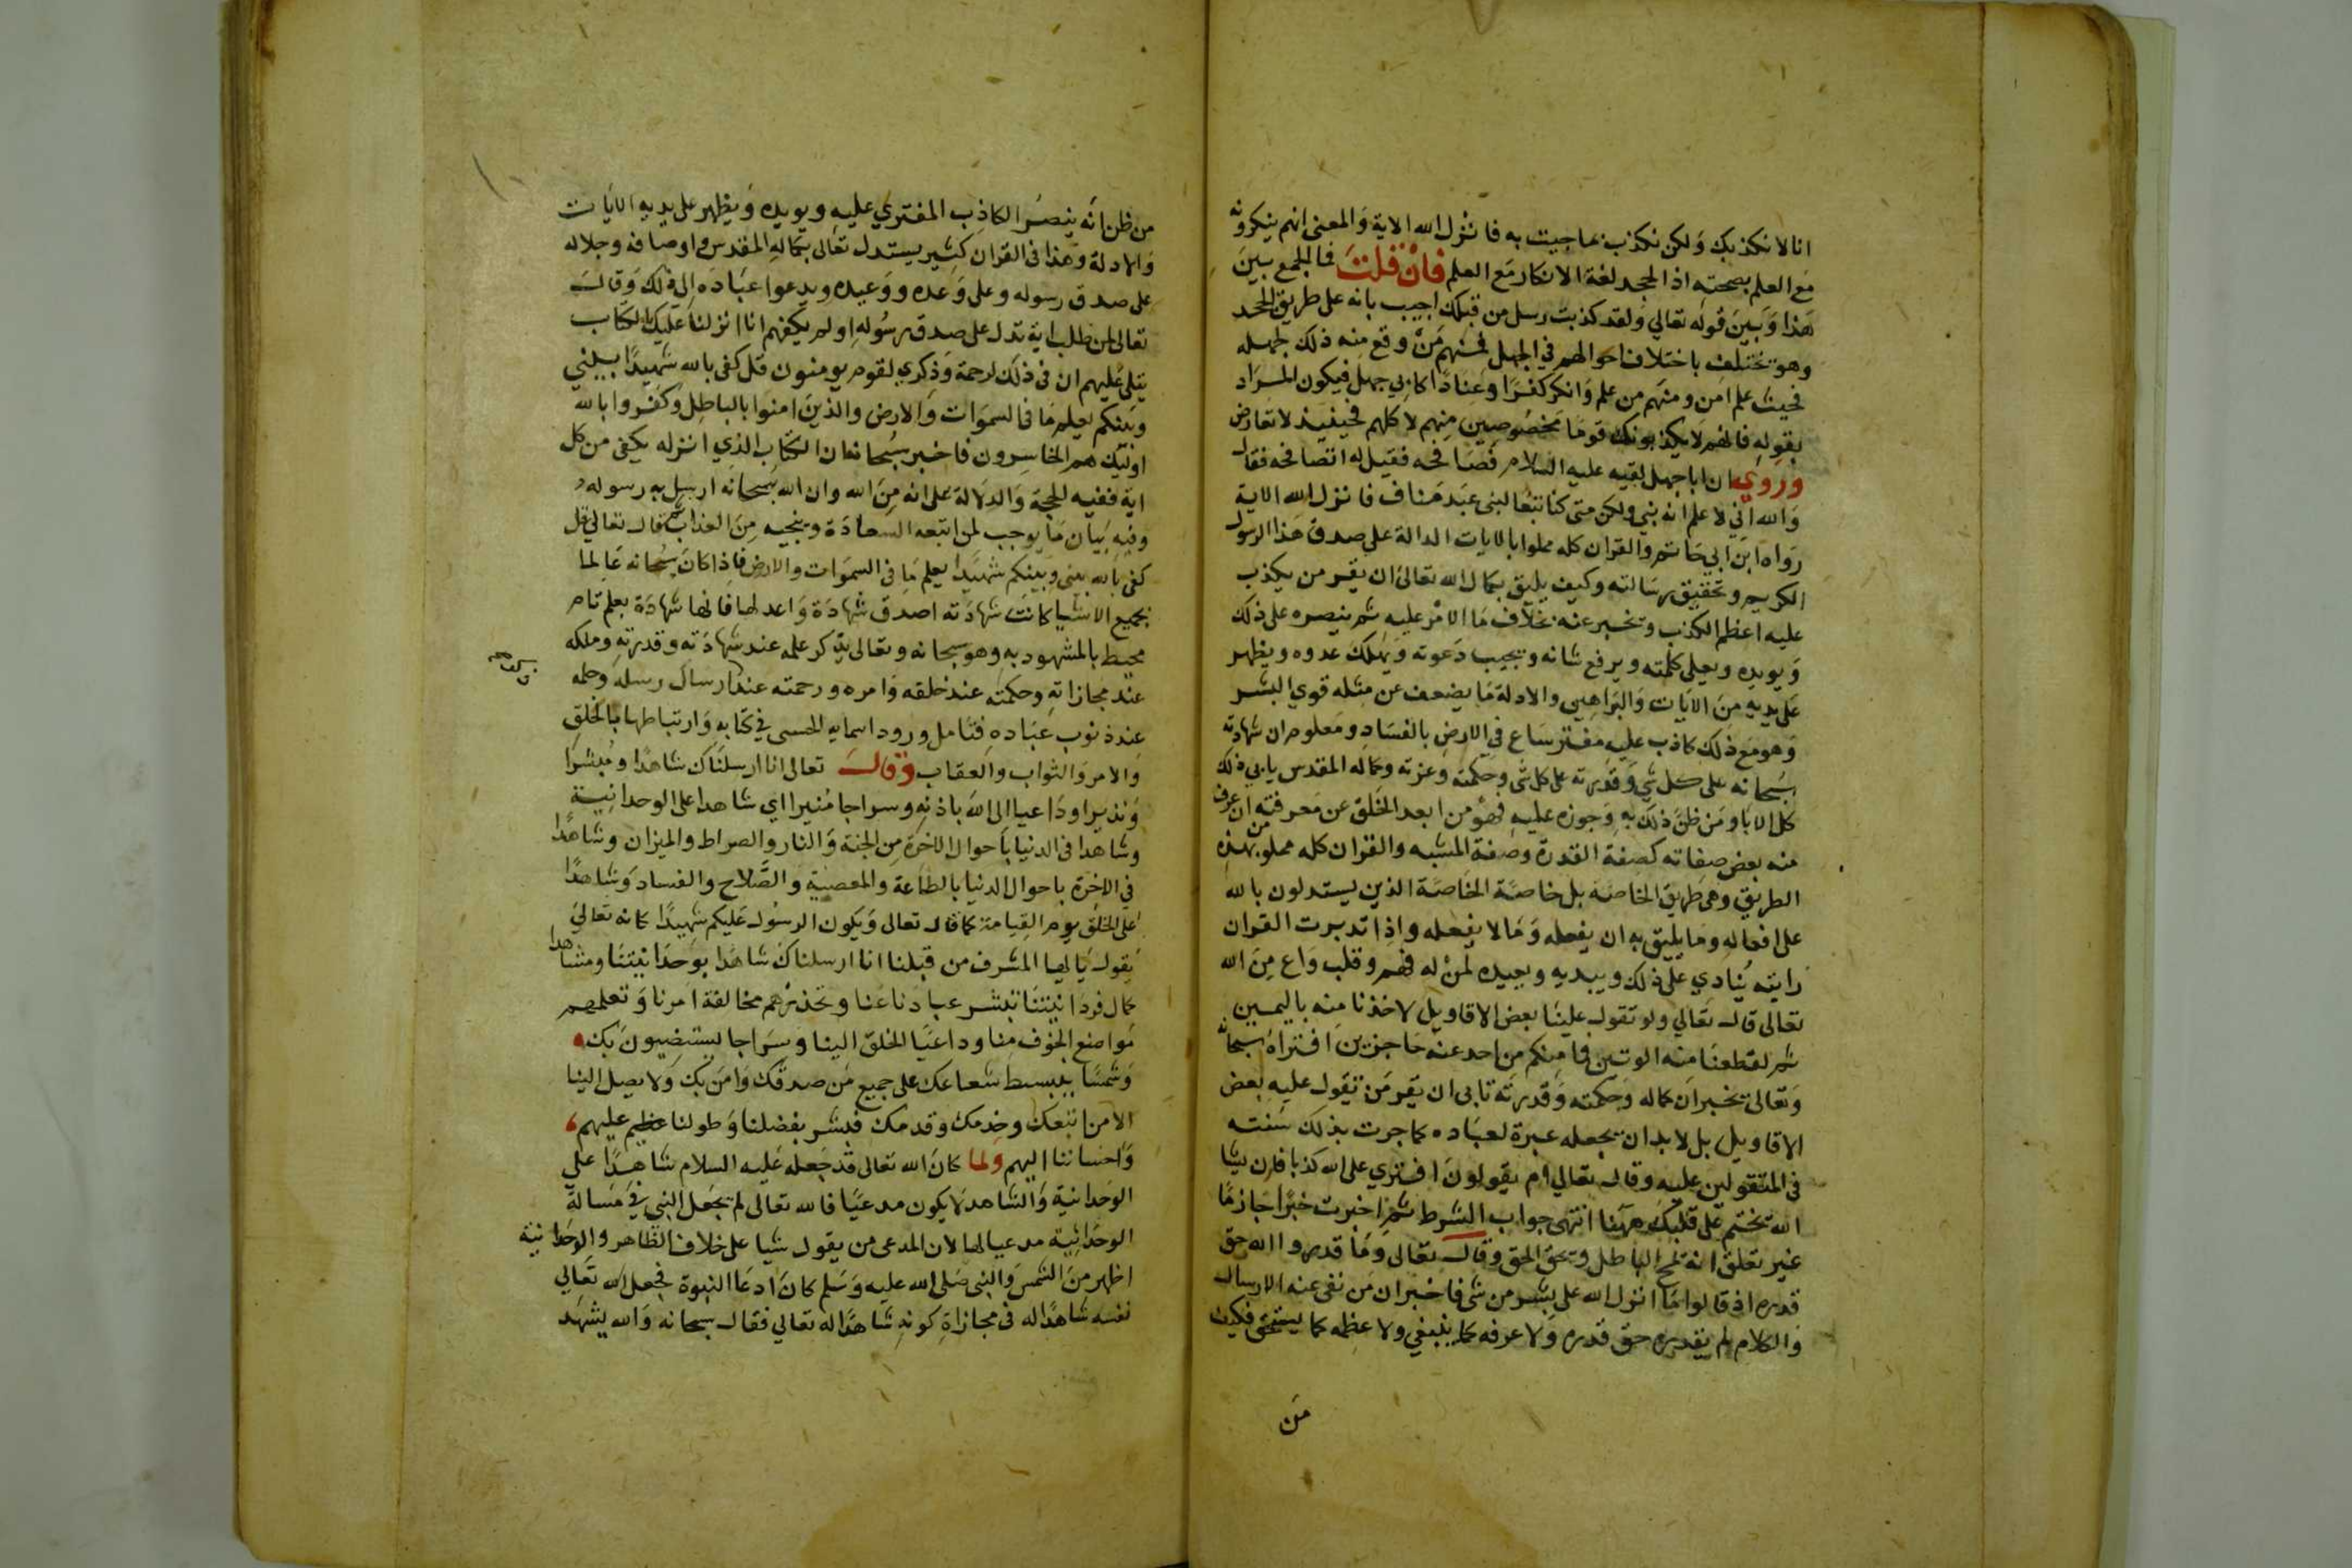 انا لا نكذبك ولكن نكذب بما جيت به فانزل الله الاية والمعنى انهم ينكرونه
مع العلم بصحته اذ الجحد لغة الانكار مع العلم فان قلت فما الجمع بين
هذا وبين قوله تعالي ولقد كذبت رسل من قبلك اجيب بانه على طريق الجحد
وهو تختلف باختلاف احوالهم في الجهل فمنهم من وقع منه ذلك لجهله
فحيث علم امن ومنهم من علم وانكر كفرا وعنادا كابي جهل فيكون المراد
بقوله فانهم لا يكذبونك قوما مخصوصين منهم لا كلهم فحينيذ لا تعارض
وروي ان ابا جهل لقيه عليه السلام فصافحه فقيل له اتصافحه فقال
والله اني لاعلم انه نبي ولكن متى كنا تبعا لبني عبد مناف فانزل الله الاية
رواه ابن ابي حاتم والقران كله مملوا بالايات الدالة على صدق هذا الرسول
الكريم وتحقيق رسالته وكيف يليق بكمال الله تعالى ان يقر من يكذب
عليه اعظم الكذب ويخبر عنه بخلاف ما الامر عليه ثم ينصره على ذلك
ويويده ويعلي كلمته ويرفع شانه ويجيب دعوته ويهلك عدوه ويظهر
على يديه من الايات والبراهين والادلة ما يضعف عن مثله قوي البشر
وهو مع ذلك كاذب عليه مفتر ساع في الارض بالفساد ومعلوم ان شهادته
سبحانه على كل شي وقدرته على كل شى وحكمته وعزته وكماله المقدس يابي ذلك
كل الابا ومن ظن ذلك به وجوزه عليه فهو من ابعد الخلق عن معرفته ان عرف
منه بعض صفاته كصفة القدرة وصفة المشيه والقران كله مملو من هذه
الطريق وهي طريق الخاصة بل خاصة الخاصة الذين يستدلون بالله
على افعاله وما يليق به ان يفعله وما لا يفعله واذا تدبرت القران
رايته ينادي على ذلك ويبديه ويعيده لمن له فهم وقلب واع من الله
تعالى قال تعالي ولو تقول علينا بعض الاقاويل لاخذنا منه باليمين
ثم لقطعنا منه الوتين فما منكم من احد عنه حاجزين افتراه سبحانه
وتعالى يخبر ان كماله وحكمته وقدرته تابى ان يقر من تقول عليه بعض
الاقاويل بل لا بد ان يجعله عبرة لعباده كما جرت بذلك سنته
في المتقولين عليه وقال تعالي ام يقولون افترى على الله كذبا فان يشا
الله يختم على قلبك وههنا انتهى جواب الشرط ثم اخبر خبرا جازما
غير تعلق انه يمح الباطل ويحق الحق وقال تعالى وما قدروا الله حق
قدره اذ قالوا ما انزل الله على بشر من شى فاخبر ان من نفى عنه الارسال
والكلام لم يقدره حق قدره ولا عرفه كما ينبغي ولا عظمه كما يستحق فكيف
من
من ظن انه ينصر الكاذب المفتري عليه ويويده ويظهر على يديه الايات
والادلة وهذا في القران كثير يستدل تعالى بكماله المقدس واوصافه وجلاله
على صدق رسوله وعلى وعده ووعيده ويدعوا عباده الى ذلك وقال
تعالى لمن طلب اية تدل على صدق رسوله اولم يكفهم انا انزلنا عليك الكتاب
يتلى عليهم ان في ذلك لرحمة وذكري لقوم يومنون قل كفى بالله شهيدا بيني
وبينكم يعلم ما في السموات والارض والذين امنوا بالباطل وكفروا بالله
اوليك هم الخاسرون فاخبر سبحانه ان الكتاب الذي انزله يكفى من كل
اية ففيه الحجة والدلالة على انه من الله وان الله سبحانه ارسل به رسوله
وفيه بيان ما يوجب لمن اتبعه السعادة وينجيه من العذاب ثم قال تعالي قل
كفى بالله بيني وبينكم شهيدا يعلم ما في السموات والارض فاذا كان سبحانه عالما
بجميع الاشيا كانت شهادته اصدق شهادة واعدلها فانها شهادة بعلم تام
محيط بالمشهود به وهو سبحانه وتعالى يذكر علمه عند شهادته وقدرته وملكه
عند مجازاته وحكمته عند خلقه وامره ورحمته عند ارسال رسله وحلمه
عند ذنوب عباده فتامل ورود اسمايه الحسى في كتابه وارتباطها بالخلق
والامر والثواب والعقاب وقال تعالى انا ارسلناك شاهدا ومبشرا
ونذيرا وداعيا الى الله باذنه وسراجا منيرا اي شاهدا على الوحدانية
وشاهدا في الدنيا باحوال الاخرة من الجنة والنار والصراط والميزان وشاهدا
في الاخرة باحوال الدنيا بالطاعة والمعصية والصلاح والفساد وشاهدا
على الخلق يوم القيامة كما قال تعالى ويكون الرسول عليكم شهيدا كانه تعالى
يقول يا ايها المشرف من قبلنا انا ارسلناك شاهدا بوحدانيتنا ومشاهدا
كمال فردانيتنا تبشر عبادنا عنا وتحذرهم مخالفة امرنا وتعلمهم
مواضع الخوف منا وداعيا الخلق الينا وسراجا يستضيون بك
وشمسا يبسط شعاعك على جميع من صدقك وامن بك ولا يصل الينا
الا من اتبعك وخدمك وقدمك فبشر بفضلنا وطولنا عظيم عليهم
واحساننا اليهم ولما كان الله تعالى قد جعله عليه السلام شاهدا على
الوحدانية والشاهد لا يكون مدعيا فالله تعالى لم يجعل النبي في مسالة
الوحدانية مدعيا لها لان المدعى من يقول شيا على خلاف الظاهر والوحدانية
اظهر من الشمس والنبى صلى الله عليه وسلم كان ادعا النبوة فجعل الله تعالي
نفسه شاهدا له في مجازاة كونه شاهدا له تعالي فقال سبحانه والله يشهد